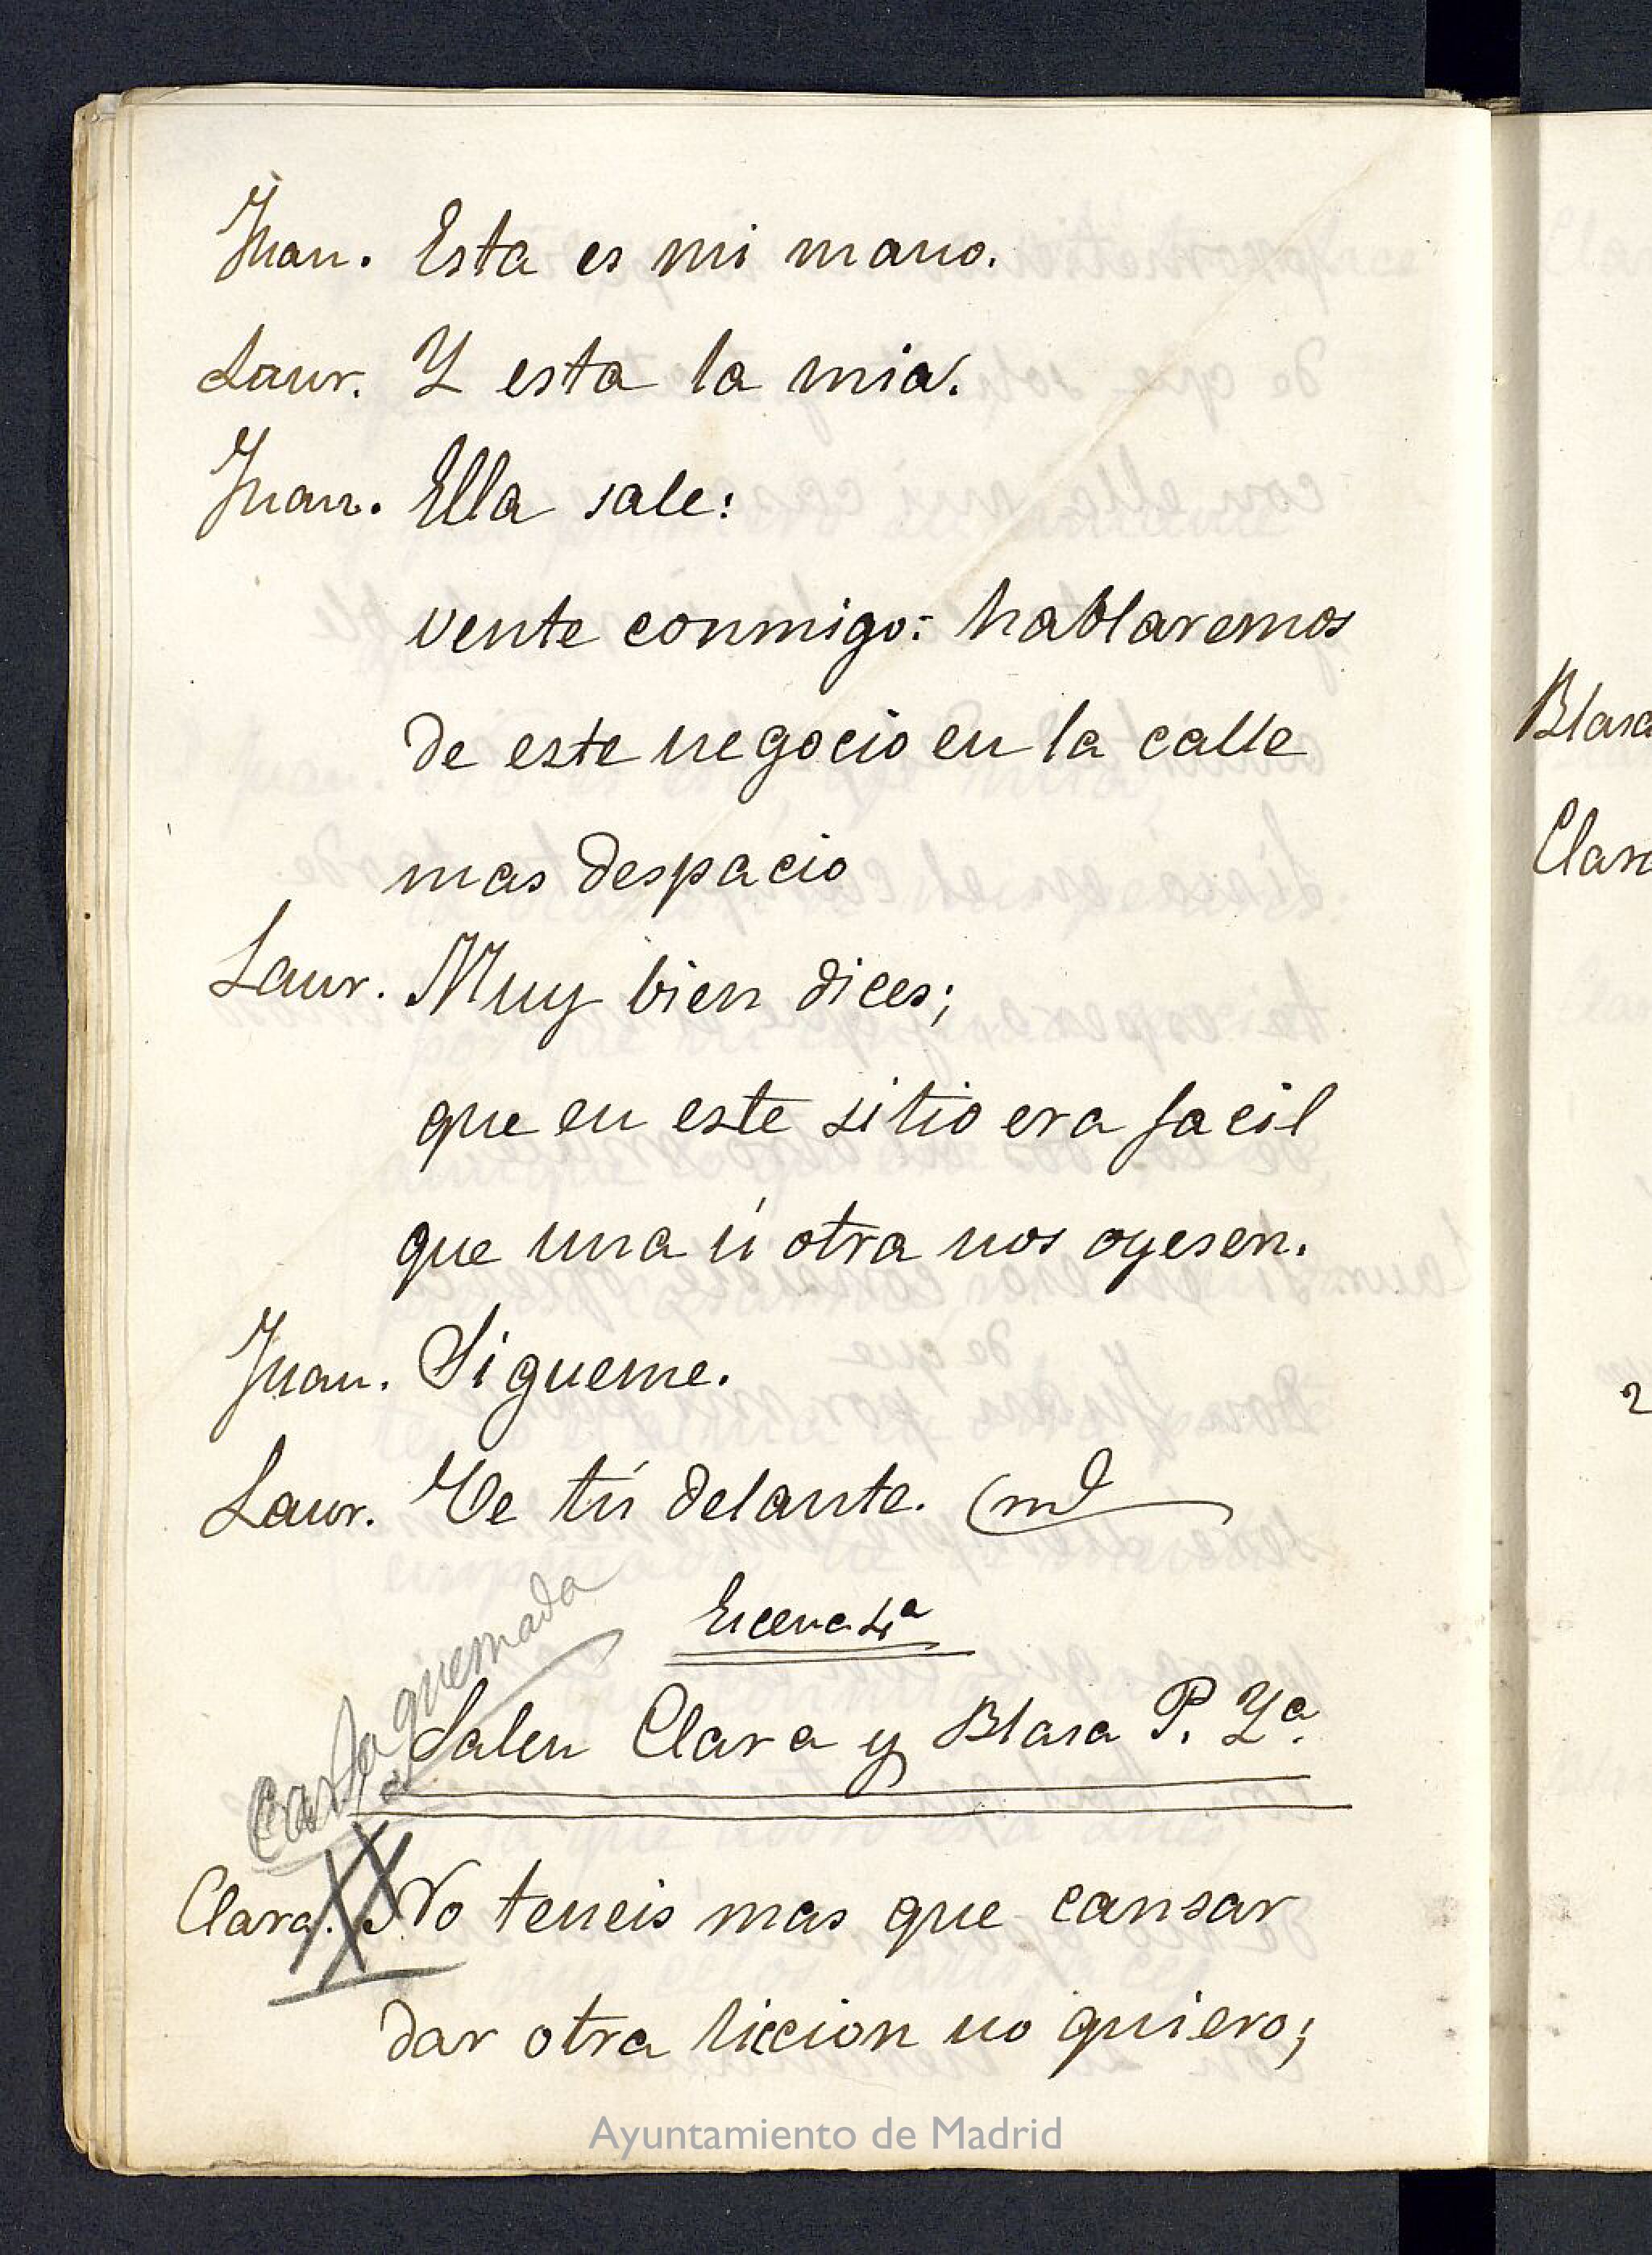 Juan. Esta es mi mano.
Laur. Y esta la mia.
Juan. Ella sale:
vente conmigo: hablaremos
de este negocio en la calle
mas despacio
Laur. Muy bien dices;
que en este sitio era facil
que una ú otra nos oyesen.
Juan. Sigueme.
Laur. Ve tú delante. (
Escena 4ª
Carta quemada
Salen Clara y Blasa P. Yª.
Clara. No teneis mas que cansar
dar otra liccion no quiero;
Blasa
Clara
Ayuntamiento de Madrid